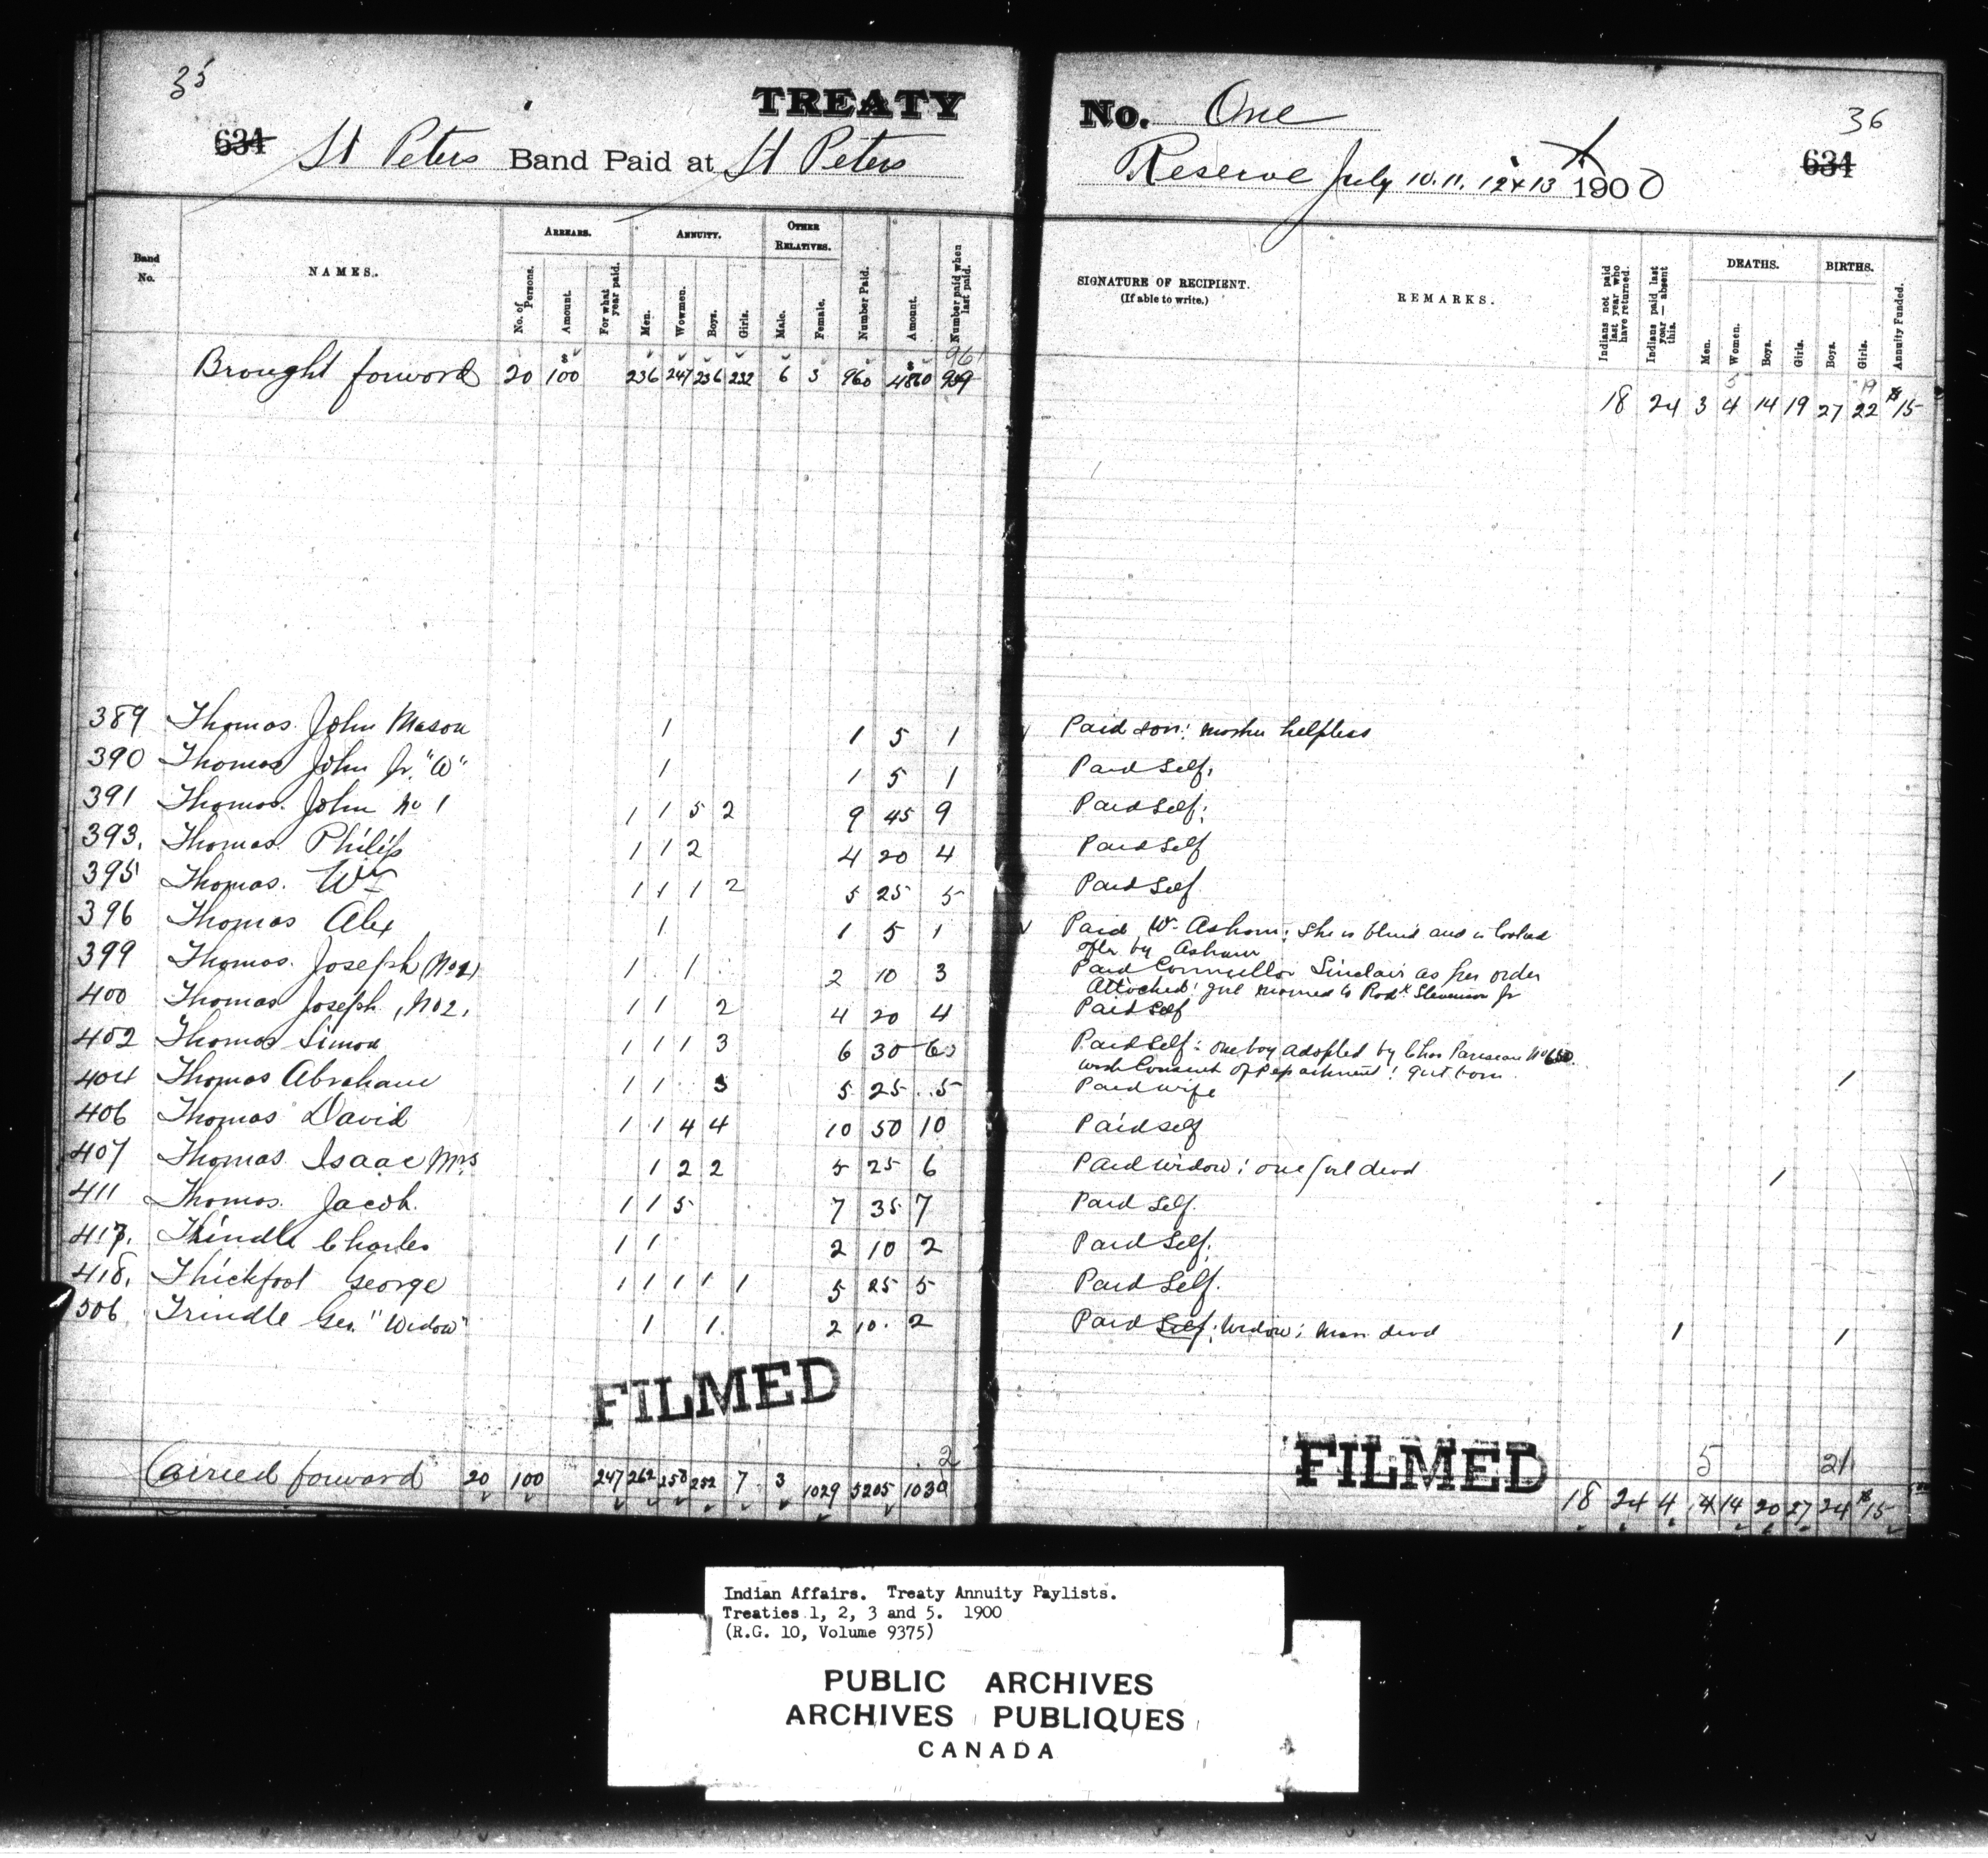 35
TREATY No. One 36
634 St Peters Band Paid at St Peters Reserve July 10. 11. 12 & 13 1900 634
Band No. NAMES. ARREARS. No. of Persons. Amount. For what year paid. ANNUITY. Men. Wowmen. Boys. Girls. OTHER RELATIVES. Male. Female. Number Paid. Amount. Number paid when last paid. SIGNATURE OF RECIPIENT. (If able to write.) REMARKS. Indians not paid last year who have returned. Indians paid last year — absent this. DEATHS. Men. Women. Boys. Girls. BIRTHS. Boys. Girls. Annuity Funded.
961
Brought forword 20 $100 236 247 236 232 6 3 960 $4860 959
5 19
18 24 3 4 14 19 27 22 $15
389 Thomas John Mason 1 1 5 1 Paid son: mother helpless
390 Thomas John Jr. "W" 1 1 5 1 Paid Self.
391 Thomas. John No 1 1 1 5 2 9 45 9 Paid Self:
393. Thomas. Philip 1 1 2 4 20 4 Paid Self
395 Thomas. Wm 1 1 1 2 5 25 5 Paid Self.
396 Thomas Alex 1 1 5 1 Paid W. Asham: She is blind and is looked
after by Asham
399 Thomas. Joseph (No 1) 1 1 2 10 3 Paid Councillor Sinclair as per order
Attached: girl married to Rodk Stevenson Jr
400 Thomas Joseph, No 2. 1 1 2 4 20 4 Paid Self
402 Thomas Simon 1 1 1 3 6 30 6 Paid Self: one boy adopted by Chas Pariseau No 650.
with Consent of Department: girl born 1
404 Thomas Abraham 1 1 3 5 25 5 Paid wife
406 Thomas David 1 1 4 4 10 50 10 Paid self
407 Thomas Isaac Mrs 1 2 2 5 25 6 Paid widow: one girl dead 1
411 Thomas. Jacob. 1 1 5 7 35 7 Paid Self.
417. Thindle Charles 1 1 2 10 2 Paid Self.
418. Thickfoot George 1 1 1 1 1 5 25 5 Paid Self.
506 Trindle Geo. "Widow" 1 1 2 10 2 Paid Self: Widow: man dead 1 1
FILMED
FILMED
2 5 21
Carried forward 20 100 247 262 250 252 7 3 1029 5205 1030 18 24 4 4 14 20 27 24 $15
Indian Affairs. Treaty Annuity Paylists.
Treaties 1, 2, 3 and 5. 1900
(R.G. 10, Volume 9375)
PUBLIC ARCHIVES
ARCHIVES PUBLIQUES
CANADA